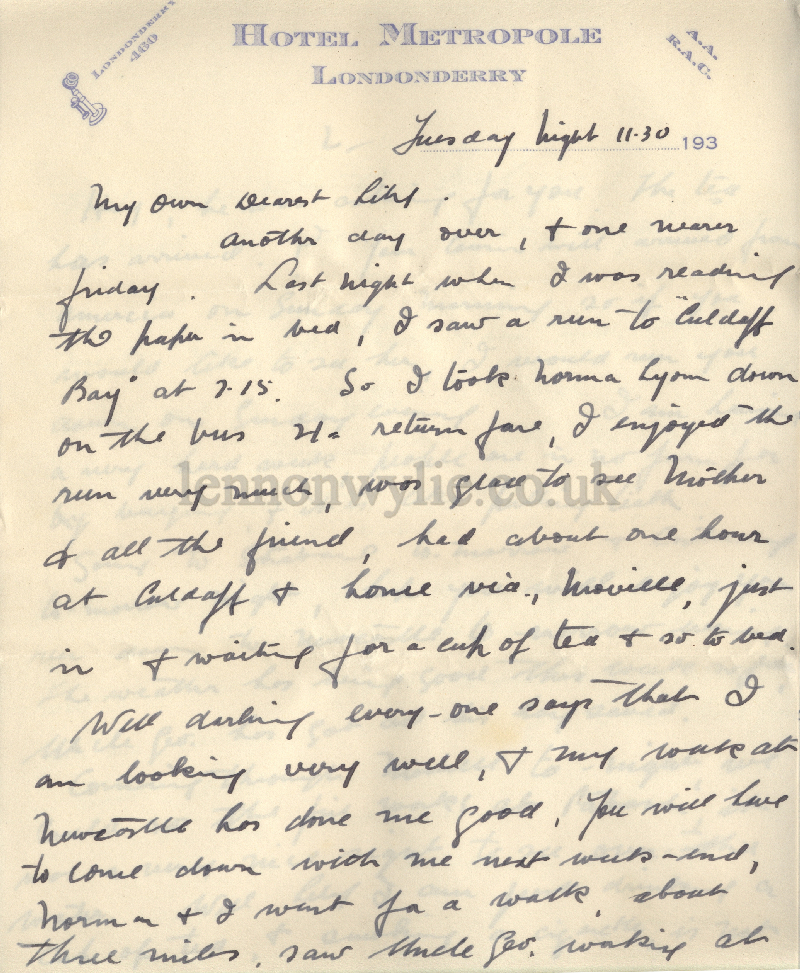 Londonderry
460
Hotel Metropole
Londonderry
A.A.
R.A.C.
Tuesday night 11-30 193
My own Dearest
another day over, & one nearer
friday. Last night when I was reading
the paper in bed, I saw a run to "Culdaff
Bay" at 7-15. So I took Norma Lyons down
on the bus return fare, I enjoyed the
run very much, was glad to see Mother
& all the friend, had about one hour
at Culdaff & home via., Moville, just
in & waiting for a cup of tea & so to bed.
Well darling every-one says that I
am looking very well, & my week at
Newcastle has done me good, You will have
to come down with me next week-end,
Norma & I went for a walk, about
three miles, saw Uncle Geo. working at
lennonwylie.co.uk